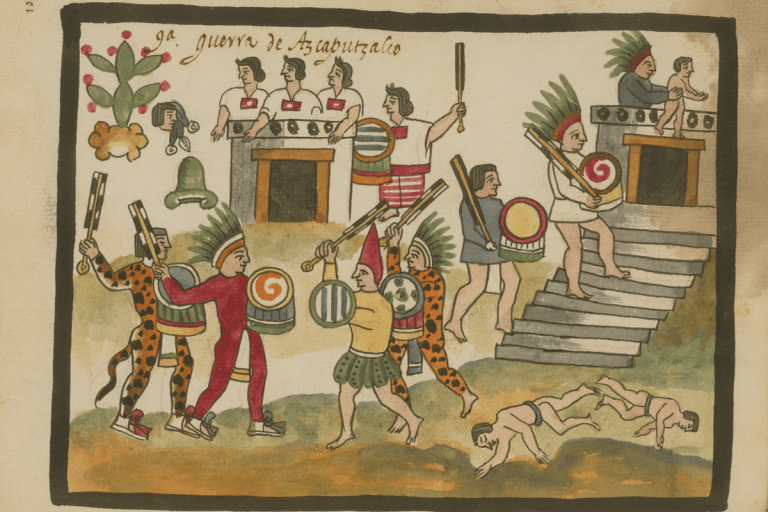 9ª. guerra de Azcaputzalco